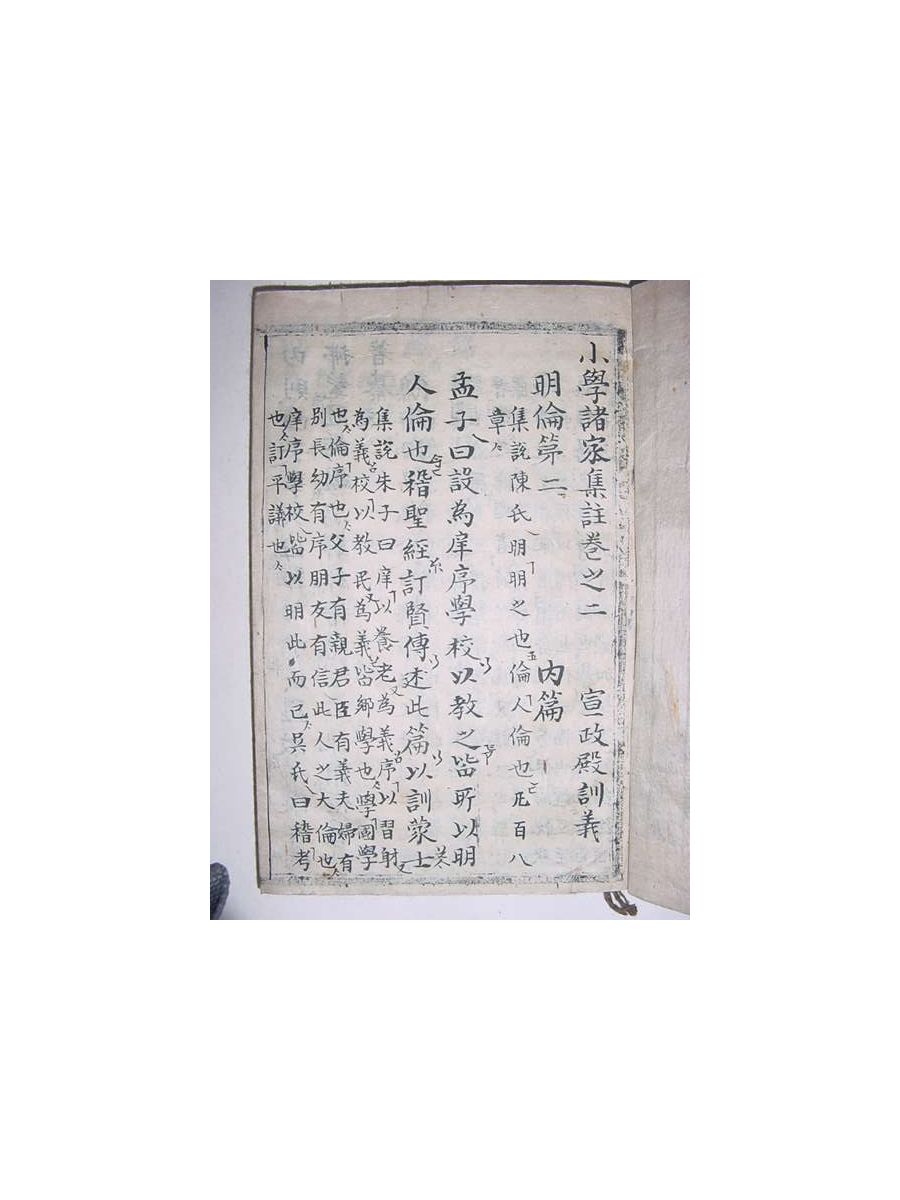 小學諸家集註卷之二 宣政殿訓義
明倫第二 內篇
集說陳氏明明之也倫人倫也凡百八
章
孟子曰設為庠序學校以教之皆所以明
人倫也稽聖經訂賢傳述此篇以訓蒙士
集說朱子曰庠以養老為義序以習射
為義校以教民為義皆鄉學也學國學
也倫序也父子有親君臣有義夫婦有
別長幼有序朋友有信此人之大倫也
庠序學校皆以明此而已吳氏曰稽考
也訂平議也